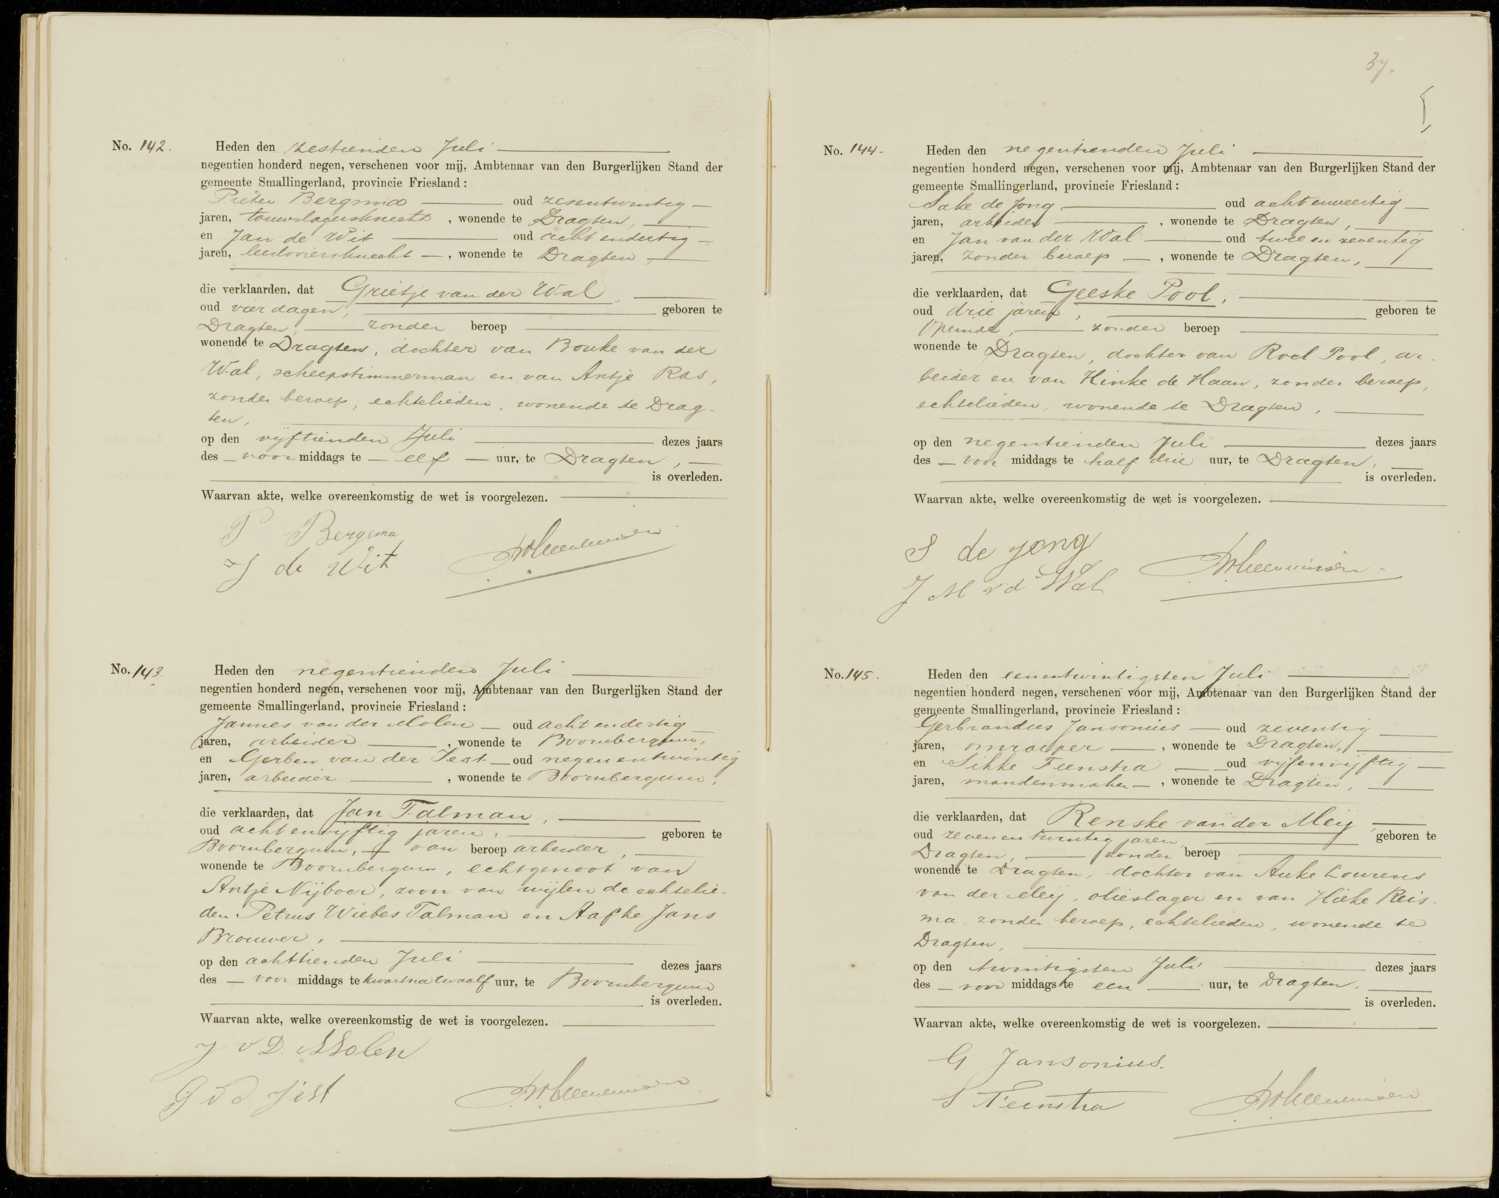 No. 142.
Heden den zestienden Juli
negentien honderd negen, verschenen voor mij, Ambtenaar van den Burgerlijken Stand der
gemeente Smallingerland, provincie Friesland:
Pieter Bergsma oud zesentwintig
jaren, touwslagersknecht, wonende te Dragten,
en Jan de Wit oud achtendertig
jaren, leerlooiersknecht, wonende te Dragten
die verklaarden, dat Grietje van der Wal,
oud vier dagen, geboren te
Dragten, zonder beroep
wonende te Dragten, dochter van Bouke van der
Wal, scheepstimmerman en van Antje Ras,
zonder beroep, echtelieden, wonende te Drag-
ten,
op den vijftienden Juli dezes jaars
des voor middags te elf uur, te Dragten,
is overleden.
Waarvan akte, welke overeenkomstig de wet is voorgelezen.
P Bergsma
J de Wit
No. 143.
Heden den negentienden Juli
negentien honderd negen, verschenen voor mij, Ambtenaar van den Burgerlijken Stand der
gemeente Smallingerland, provincie Friesland:
Jannes van der Molen oud achtendertig
jaren, arbeider, wonende te Boornbergum,
en Gerben van der Zest oud negenentwintig
jaren, arbeider, wonende te Boornbergum,
die verklaarden, dat Jan Talman,
oud achtenvijftig jaren, geboren te
Boornbergum, van beroep arbeider,
wonende te Boornbergum, echtgenoot van
Antje Nijboer, zoon van wijlen de echtelie-
den Petrus Wiebes Talman en Aafke Jans
Brouwer,
op den achttienden Juli dezes jaars
des voor middags te kwart na twaalf uur, te Boornbergum
is overleden.
Waarvan akte, welke overeenkomstig de wet is voorgelezen.
J v D Molen
G v d
37.
No. 144.
Heden den negentienden Juli
negentien honderd negen, verschenen voor mij, Ambtenaar van den Burgerlijken Stand der
gemeente Smallingerland, provincie Friesland:
Sake de Jong oud achtenveertig
jaren, arbeider, wonende te Dragten,
en Jan van der Wal oud twee en zeventig
jaren, zonder beroep, wonende te Dragten,
die verklaarden, dat Geeske Pool,
oud drie jaren, geboren te
Opeinde, zonder beroep
wonende te Dragten, dochter van Roel Pool, ar-
beider en van Hinke de Haan, zonder beroep,
echtelieden, wonende te Dragten,
op den negentienden Juli dezes jaars
des voor middags te half drie uur, te Dragten,
is overleden.
Waarvan akte, welke overeenkomstig de wet is voorgelezen.
S de jong
J M v d Wal
No. 145.
Heden den eenentwintigsten Juli
negentien honderd negen, verschenen voor mij, Ambtenaar van den Burgerlijken Stand der
gemeente Smallingerland, provincie Friesland:
Gerbrandus Jansonius oud zeventig
jaren, omroeper, wonende te Dragten,
en Sikke Feenstra oud vijfenvijftig
jaren, mandenmaker, wonende te Dragten,
die verklaarden, dat Renske van der Meij,
oud zevenentwintig jaren, geboren te
Dragten, zonder beroep
wonende te Dragten, dochter van Auke Lourens
van der Meij, olieslager en van Hieke Reis-
ma, zonder beroep, echtelieden, wonende te
Dragten,
op den twintigsten Juli dezes jaars
des voor middags te een uur, te Dragten,
is overleden.
Waarvan akte, welke overeenkomstig de wet is voorgelezen.
G Jansonius.
S Feenstra